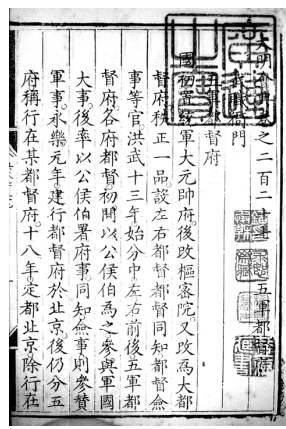 大明會典卷之二百二十七 五軍都督府
衙門
五軍都督府
國初置統軍大元帥府後改樞密院又改為大都
督府秩正一品設左右都督都督同知都督僉
事等官洪武十三年始分中左右前後五軍都
督府各府都督初間以公侯伯為之參與軍國
大事後率以公侯伯署府事同知僉事則參贊
軍事永樂元年建行都督府於北京後仍分五
府稱行在某都督府十八年定都北京除行在